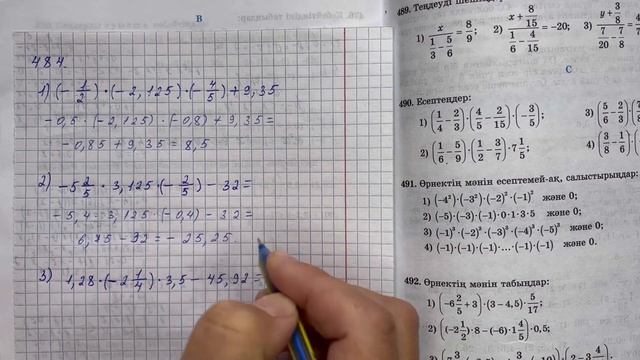 В
484
1) (-1/2) · (-2,125) · (-4/5) + 9,35
-0,5 · (-2,125) · (-0,8) + 9,35 =
-0,85 + 9,35 = 8,5
2) -5 2/5 · 3,125 · (-2/5) - 32 =
-5,4 · 3,125 · (-0,4) - 32 =
6,75 - 32 = - 25,25.
3) 1,28 · (-2 1/4) · 3,5 - 45,92 =
489. Теңдеуді
1) x / (1/3 - 5/6) = 8/9;
2) (x + 8/15) / (1/6 - 4/15) = -20;
3) (y + 3/8) / (7/20 - 7/8)
С
490. Есептеңдер:
1) (1/4 - 2/3) · (4/5 - 2/15) · (-3/5);
3) (5/6 - 2/3)
2) (1/6 - 5/9) · (1/2 - 3/7) · 7 1/5;
4) (3/8 - 1/6)
491. Өрнектің мәнін есептемей-ақ, салыстырыңдар:
1) (-4)² · (-3)² · (-2)² · (-1)² және 0;
2) (-5) · (-3) · (-1) · 0 · 1 · 3 · 5 және 0;
3) (-1)² · (-2)² · (-3)² · (-4)² · (-5)² және 0;
4) (-1) · (-1) · (-1) · ... · (-1) · (-1) және 0.
492. Өрнектің мәнін табыңдар:
1) (-6 2/5 + 3) · (3 - 4,5) · 5/17;
2) ((-2 1/2) · 8 - (-6) · 1 4/5) · 0,5;